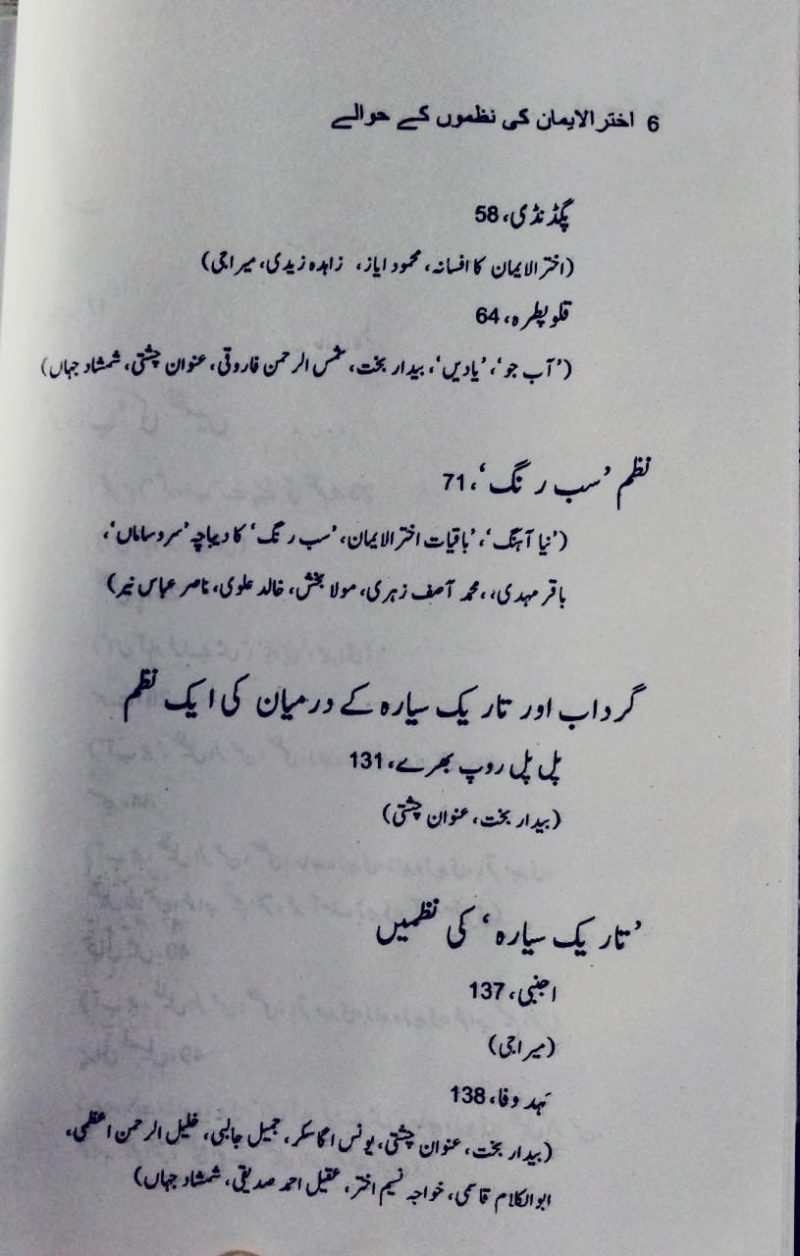 6 اختر الایمان کی نظموں کے حوالے
پگڈنڈی، 58
(اختر الایمان کا افسانہ، محمود ایاز، زاہدہ زیدی، میراجی)
قلوپطرہ، 64
(’آب جو‘، ’یادیں‘، بیدار بخت، شمس الرحمن فاروقی، عنوان چشتی، شمشاد جہاں)
نظم ’سب رنگ‘، 71
(’نیا آہنگ‘، ’باقیات اختر الایمان، ’سب رنگ‘ کا دیباچہ ’سروساماں‘،
باقر مہدی،، محمد آصف زہری، مولا بخش، خالد علوی، ناصر عباس نیر)
گرداب اور تاریک سیارہ کے درمیان کی ایک نظم
پل پل روپ بھرے، 131
(بیدار بخت، عنوان چشتی)
’تاریک سیارہ‘ کی نظمیں
اجنبی، 137
(میراجی)
عہد وفا، 138
(بیدار بخت، عنوان چشتی، یونس اگاسکر، جمیل جالبی، خلیل الرحمن اعظمی،
ابوالکلام قاسمی، خواجہ نسیم اختر، عقیل احمد صدیقی، شمشاد جہاں)